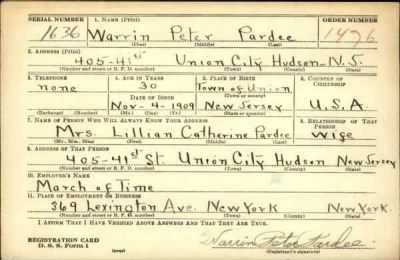 SERIAL NUMBER 1. NAME (Print) ORDER NUMBER
1636 Warrin Peter Pardee 1476
(First) (Middle) (Last)
2. ADDRESS (Print)
405-41st Union City Hudson N.J.
(Number and street or R. F. D. number) (Town) (County) (State)
3. TELEPHONE 4. AGE IN YEARS 5. PLACE OF BIRTH 6. COUNTRY OF CITIZENSHIP
none 30 Town of Union
DATE OF BIRTH (Town or county)
Nov-4-1909 New Jersey U.S.A.
(Exchange) (Number) (Mo.) (Day) (Yr.) (State or country)
7. NAME OF PERSON WHO WILL ALWAYS KNOW YOUR ADDRESS 8. RELATIONSHIP OF THAT PERSON
Mrs. Lillian Catherine Pardee Wife
(Mr., Mrs., Miss) (First) (Middle) (Last)
9. ADDRESS OF THAT PERSON
405-41st St. Union City Hudson New Jersey
(Number and street or R. F. D. number) (Town) (County) (State)
10. EMPLOYER'S NAME
March of Time
11. PLACE OF EMPLOYMENT OR BUSINESS
369 Lexington Ave. New York New York
(Number and street or R. F. D. number) (Town) (County) (State)
I AFFIRM THAT I HAVE VERIFIED ABOVE ANSWERS AND THAT THEY ARE TRUE.
REGISTRATION CARD
D. S. S. Form 1 (over) Warrin Peter Pardee
(Registrant's signature)